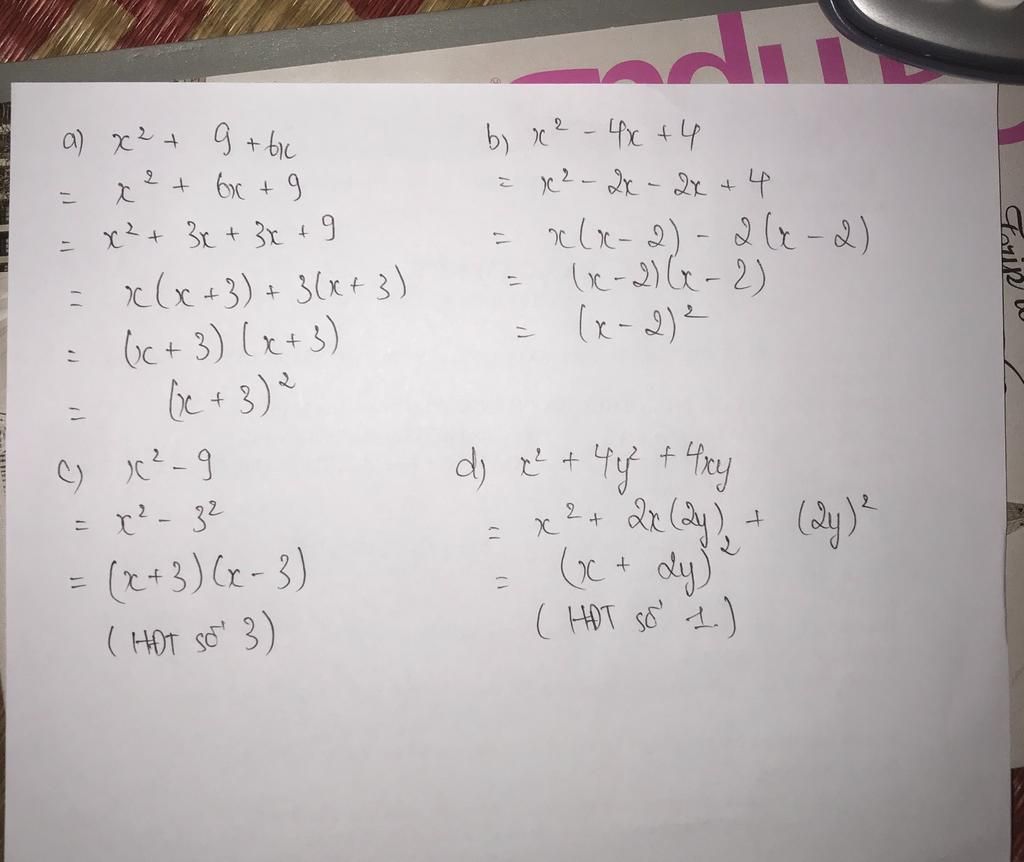 a) x² + 9 + 6x
= x² + 6x + 9
= x² + 3x + 3x + 9
= x(x + 3) + 3(x + 3)
= (x + 3)(x + 3)
= (x + 3)²
b) x² - 4x + 4
= x² - 2x - 2x + 4
= x(x - 2) - 2(x - 2)
= (x - 2)(x - 2)
= (x - 2)²
c) x² - 9
= x² - 3²
= (x + 3)(x - 3)
(HĐT số 3)
d) x² + 4y² + 4xy
= x² + 2x(2y) + (2y)²
= (x + 2y)²
(HĐT số 1.)